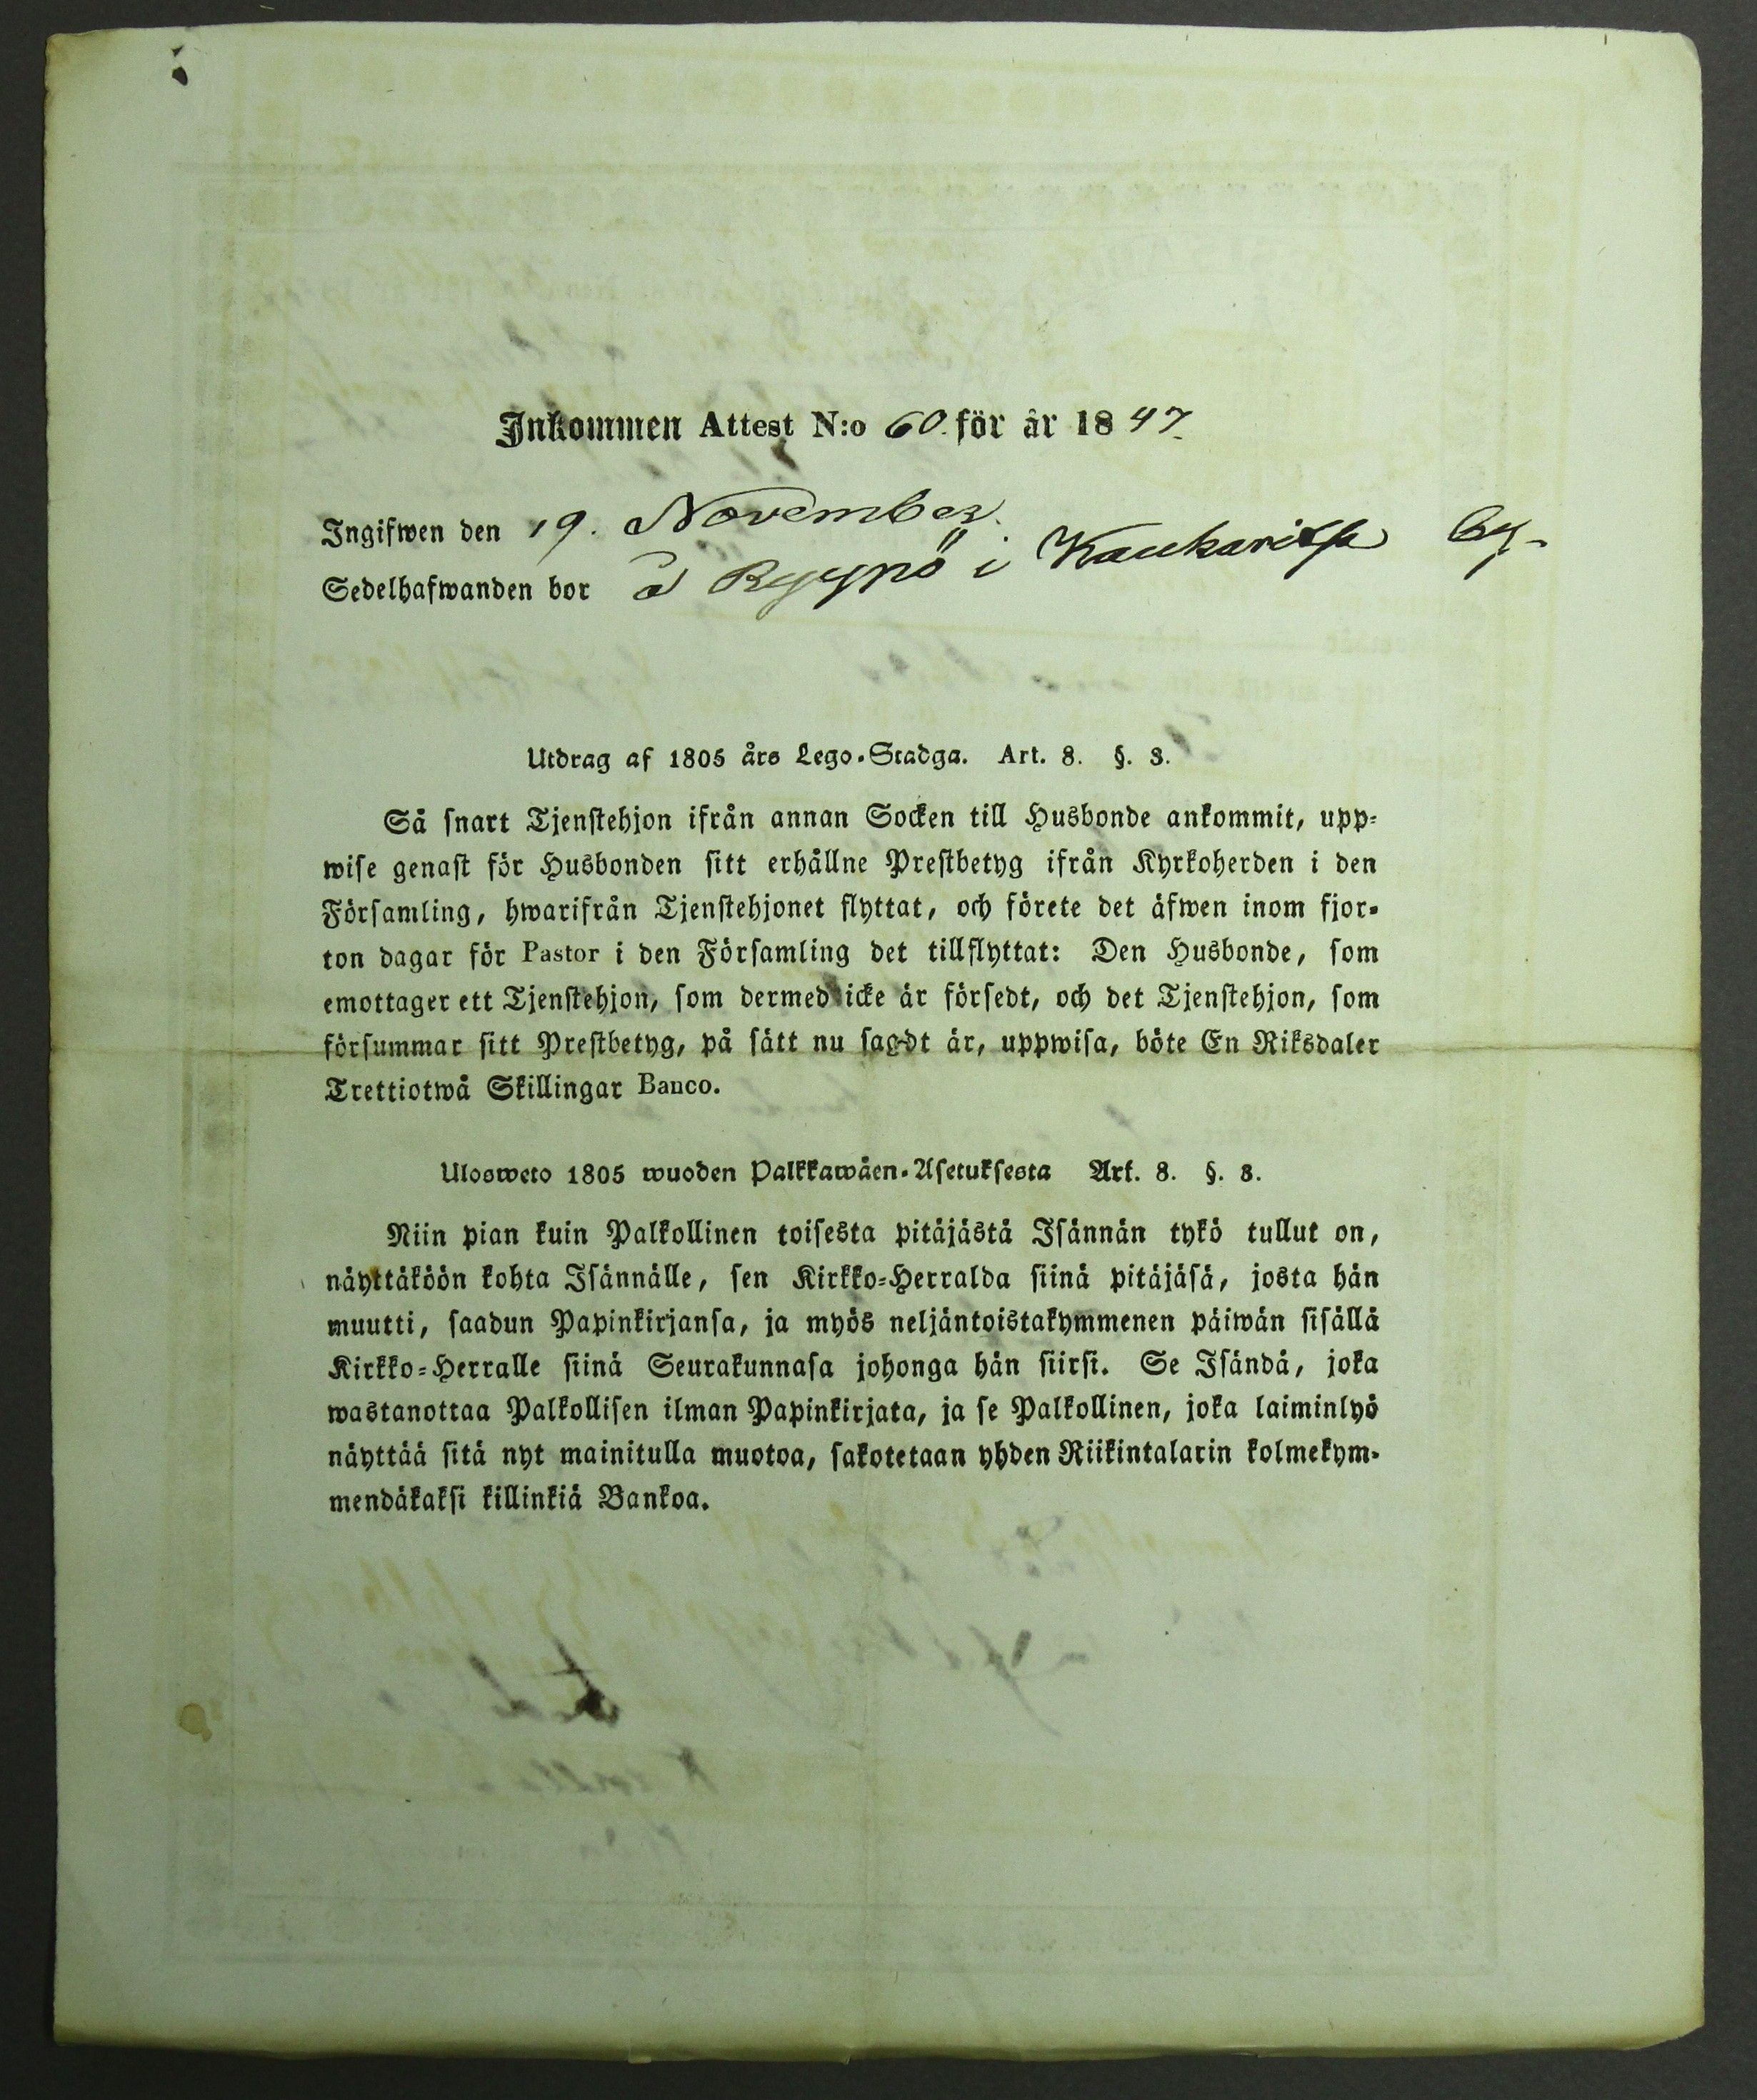 Inkommen Attest N:o 60. för år 1847.
Ingifwen den 19. November.
Sedelhafwanden bor å Ryypö i Kauharitsa by.
Utdrag af 1805 års Lego-Stadga. Art. 8. §. 3.
Så snart Tjenstehjon ifrån annan Socken till Husbonde ankommit, upp-
wise genast för Husbonden sitt erhållne Prestbetyg ifrån Kyrkoherden i den
Församling, hwarifrån Tjenstehjonet flyttat, och förete det äfwen inom fjor-
ton dagar för Pastor i den Församling det tillflyttat: Den Husbonde, som
emottager ett Tjenstehjon, som dermed icke är försedt, och det Tjenstehjon, som
försummar sitt Prestbetyg, på sätt nu sagdt är, uppwisa, böte En Riksdaler
Trettiotwå Skillingar Banco.
Ulosweto 1805 wuoden Palkkawäen-Asetuksesta Art. 8. §. 3.
Niin pian kuin Palkollinen toisesta pitäjästä Isännän tykö tullut on,
näyttäköön kohta Isännälle, sen Kirkko-Herralda siinä pitäjäsä, josta hän
muutti, saadun Papinkirjansa, ja myös neljäntoistakymmenen päiwän sisällä
Kirkko-Herralle siinä Seurakunnasa johonga hän siirsi. Se Isändä, joka
wastanottaa Palkollisen ilman Papinkirjata, ja se Palkollinen, joka laiminlyö
näyttää sitä nyt mainitulla muotoa, sakotetaan yhden Riikintalarin kolmekym-
mendäkaksi killinkiä Bankoa.